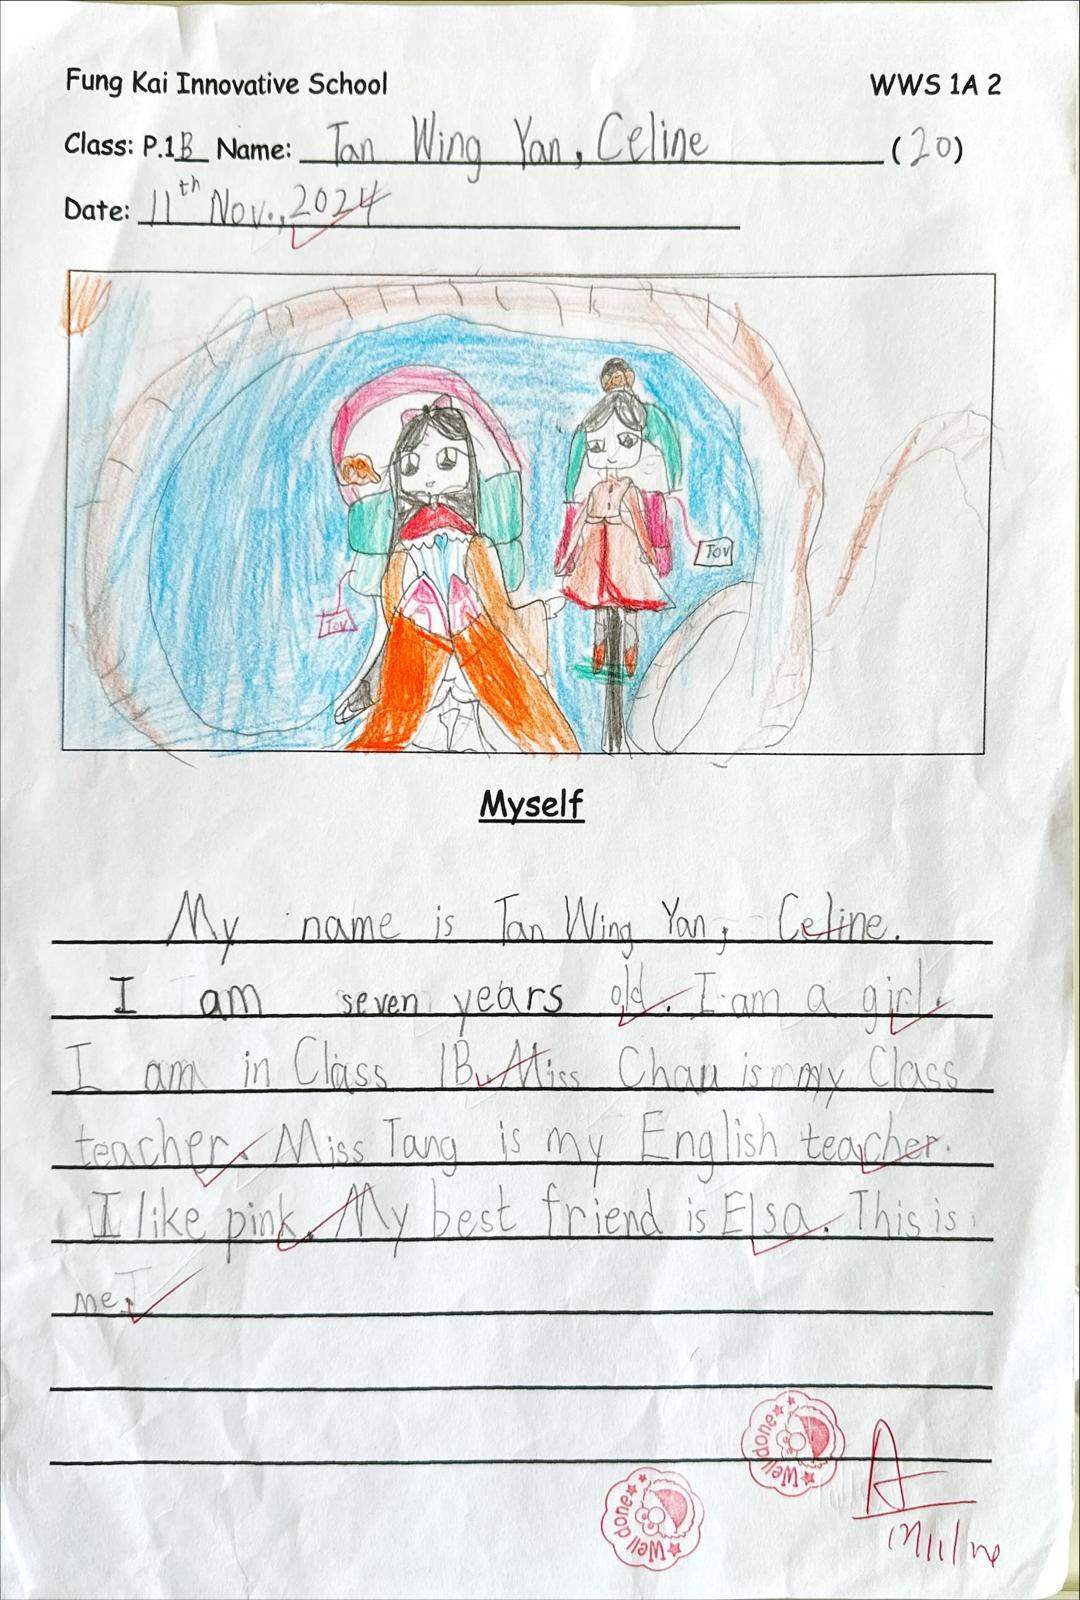 Fung Kai Innovative School WWS 1A 2
Class: P.1B Name: Tan Wing Yan, Celine (20)
Date: 11th Nov., 2024
Tov
Tov
Myself
My name is Tan Wing Yan, Celine.
I am seven years old. I am a girl.
I am in Class 1B. Miss Chau is my Class
teacher. Miss Tang is my English teacher.
I like pink. My best friend is Elsa. This is
me.
Well done
Well done
A